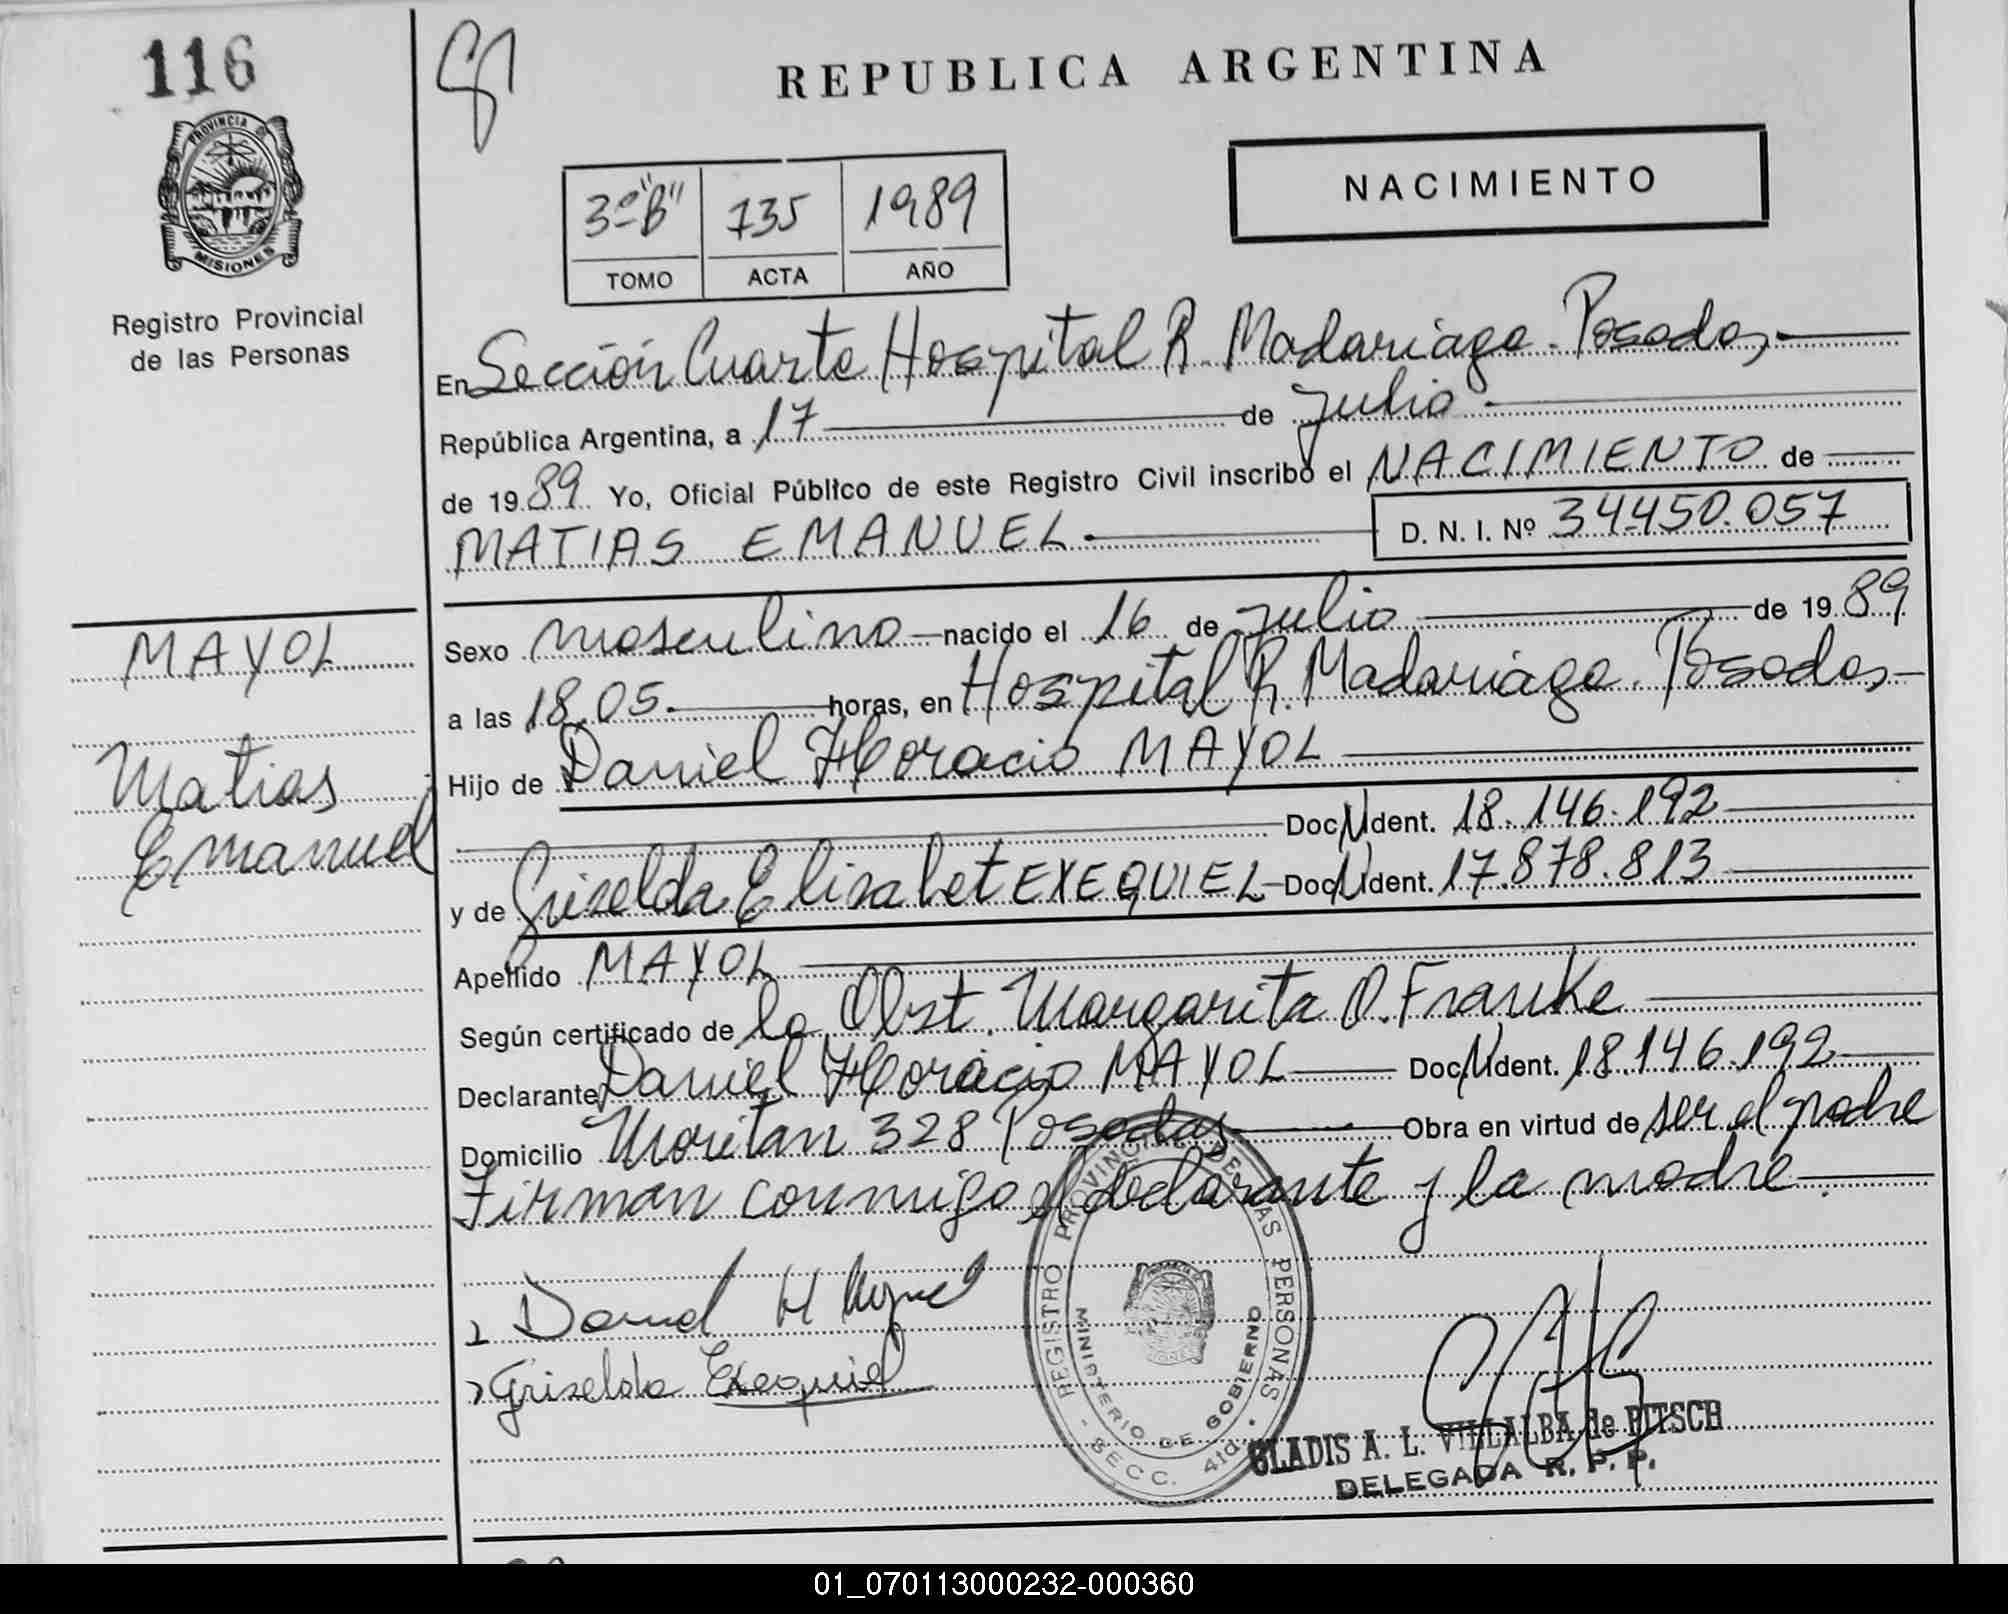 116
REPUBLICA ARGENTINA
PROVINCIA DE
MISIONES
Registro Provincial
de las Personas
3º"B" 735 1989
TOMO ACTA AÑO
NACIMIENTO
En Sección Cuarta Hospital R. Madariaga. Posadas
República Argentina, a 17 de julio
de 1989. Yo, Oficial Público de este Registro Civil inscribo el NACIMIENTO de
MATIAS EMANUEL. D. N. I. Nº 34.450.057
MAYOL
Matias
Emanuel
Sexo masculino nacido el 16 de julio de 1989
a las 18,05. horas, en Hospital R. Madariaga. Posadas
Hijo de Daniel Horacio MAYOL
Doc. N Ident. 18.146.192
y de Griselda Elizabet EXEQUIEL Doc. N Ident. 17.878.813
Apellido MAYOL
Según certificado de la Obst. Margarita O. Franke
Declarante Daniel Horacio MAYOL Doc. N Ident. 18.146.192
Domicilio Moritan 328 Posadas Obra en virtud de ser el padre
Firman conmigo el declarante y la madre.
Daniel H
Griselda Exequiel
REGISTRO PROVINCIAL DE LAS PERSONAS
MINISTERIO DE GOBIERNO
SECC. 4ta.
GLADIS A. L. VILLALBA de PITSCH
DELEGADA R. P. P.
01_070113000232-000360